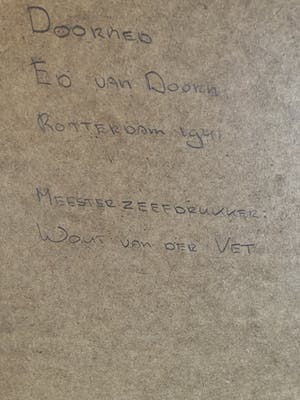 DOORNED
ED VAN DOORN
ROTTERDAM 1941
MEESTERZEEFDRUKKER:
WOUT VAN DER VET